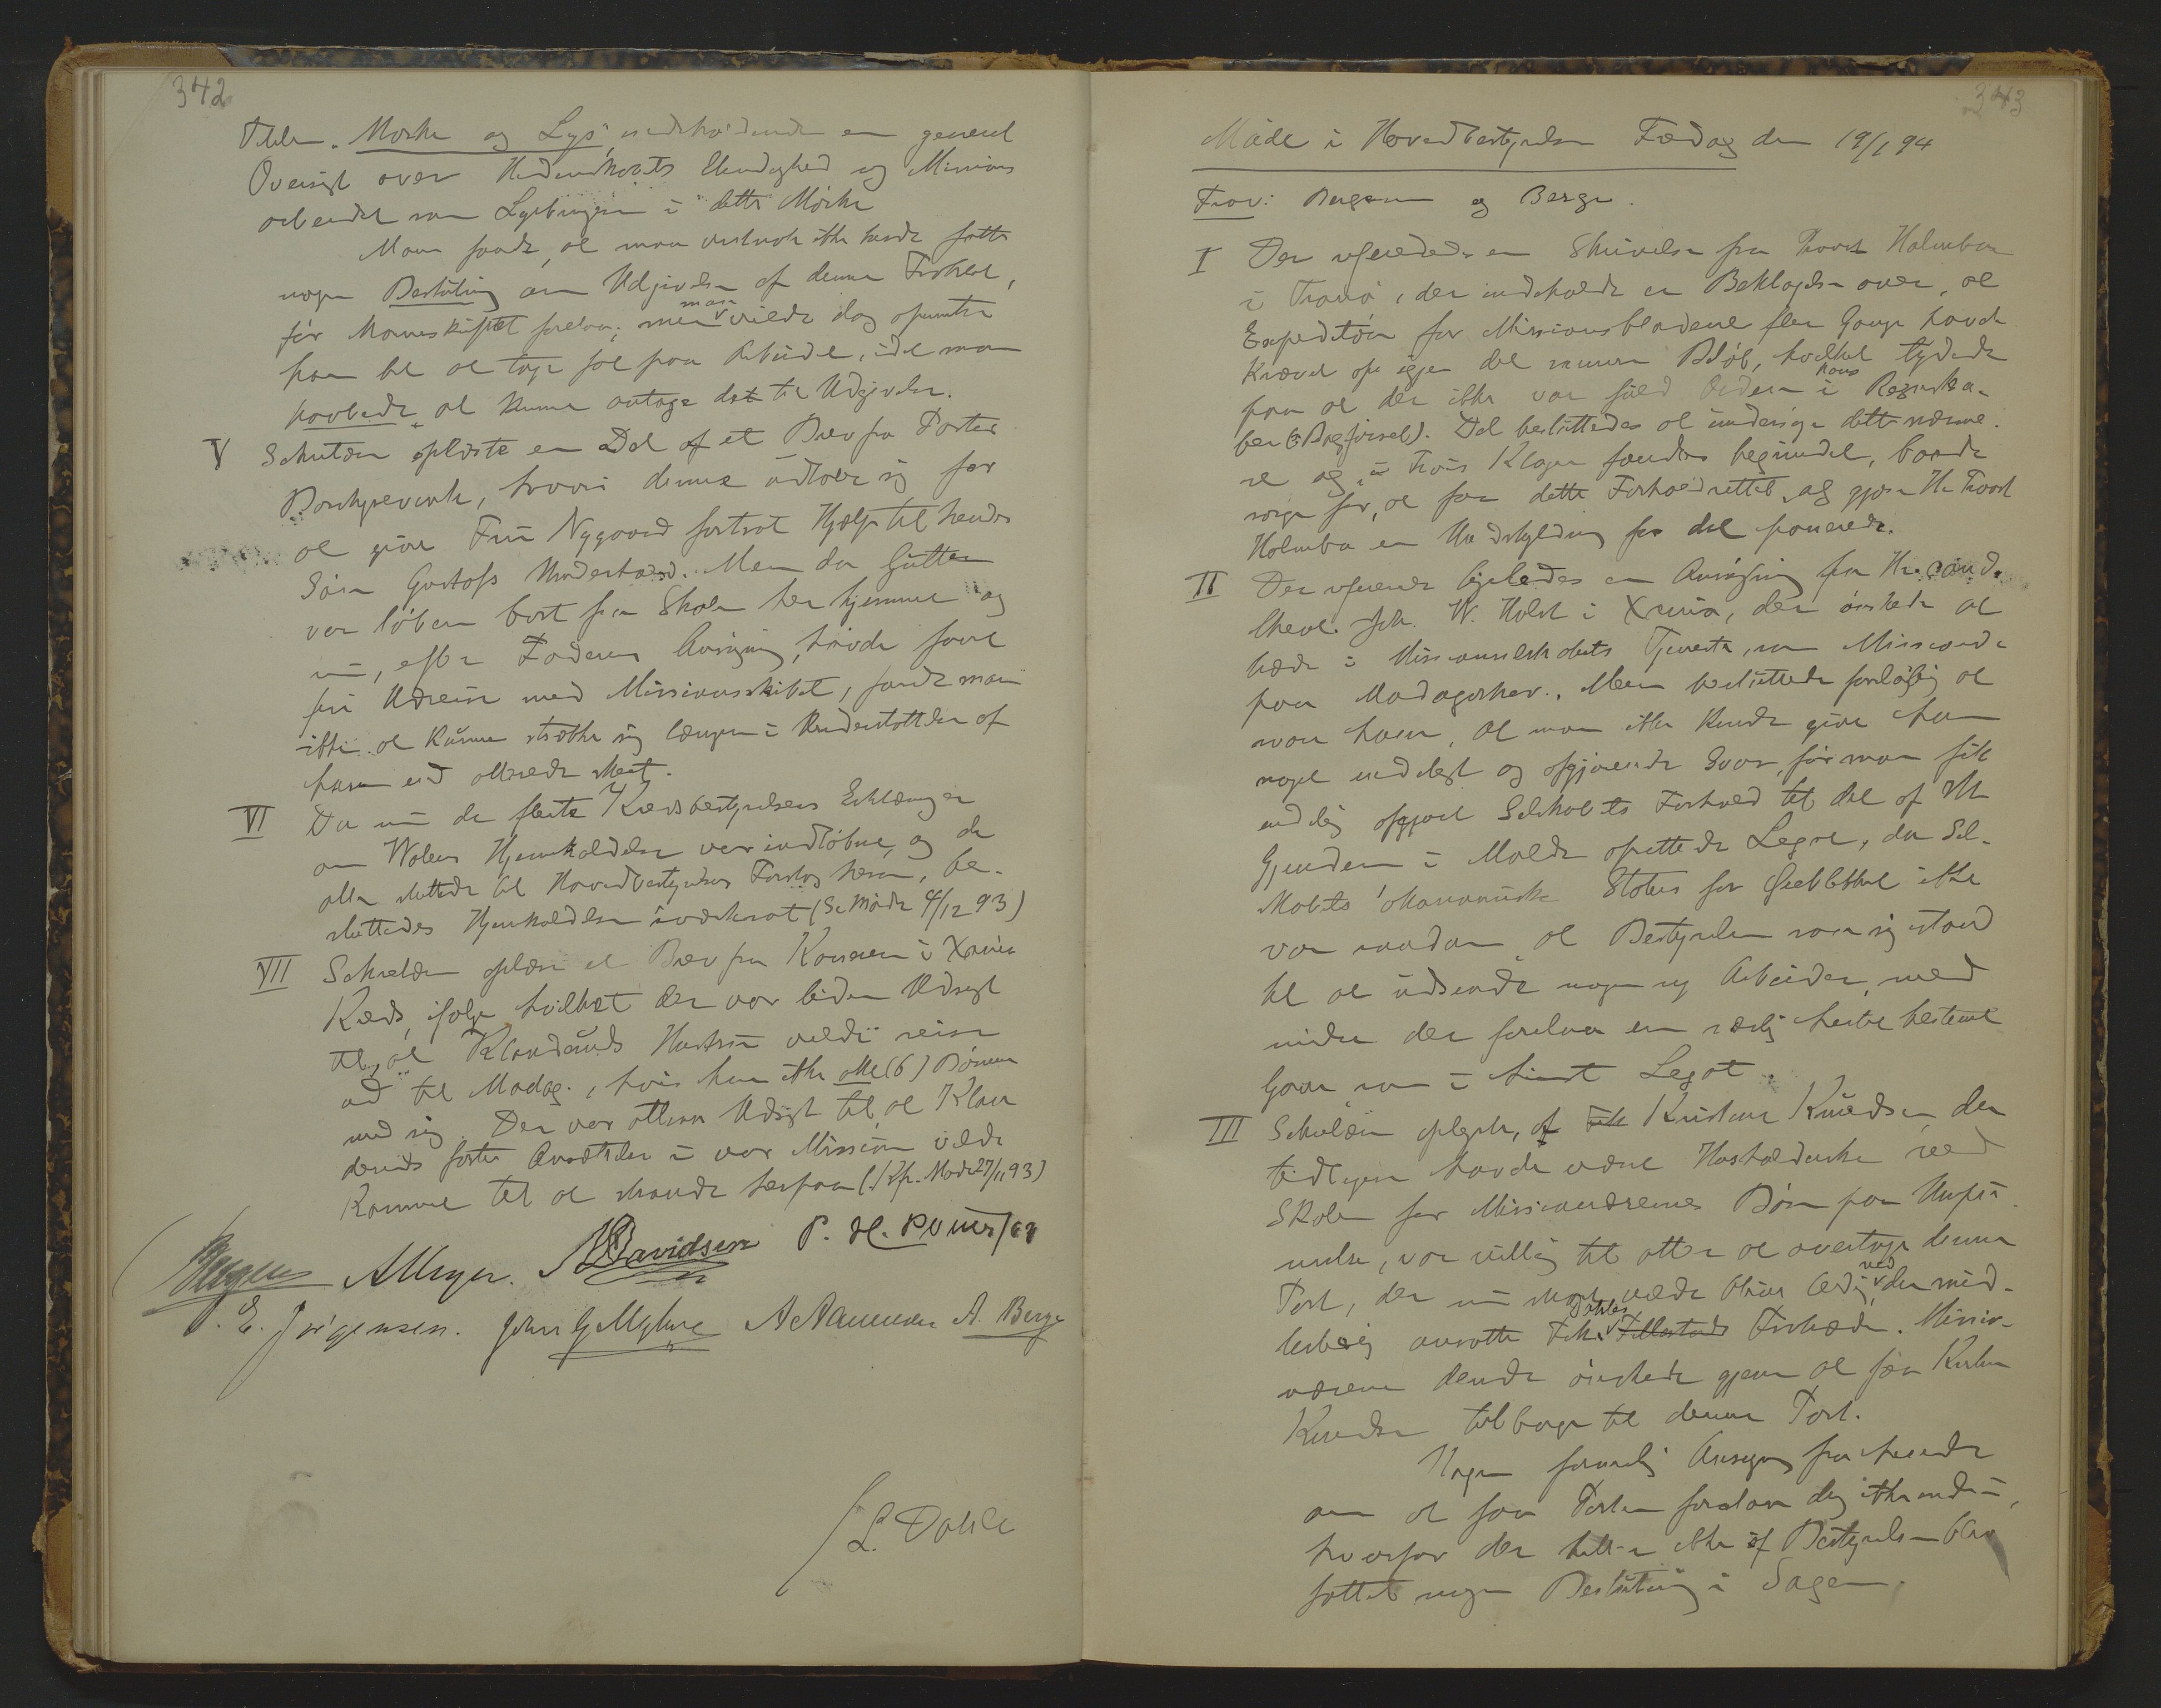 342
Titelen "Mørke og Lys", indeholdende en generel
Oversigt over Hedenskabets Elendighed og Missions
arbeidet som Lysbringer i dette Mørke
Man fandt, at man vistnok ikke kunde fatte
nogen Beslutning om Udgivelse af denne Trohed,
før Manuskriptet forelaa; men man vilde dog opmuntre
ham til at tage fat paa Arbeidet, idet man
haabede at kunne antage det til Udgivelse.
V Sekretæren oplæste en Del af et Brev fra Pastor
Borchgrevink, hvori denne udtaler sig for
at give Fru Nygaard fortsat Hjælp til hendes
Søn Gustafs Underhold. Men da Gutten
var løben bort fra Skolen her hjemme og
nu, efter Faderens Anvisning, havde faaet
fri Udreise med Missionsskibet, fandt man
ikke at kunne strække sig længere i Understøttelse af
ham end allerede skeet.
VI Da nu de fleste Kredsbestyrelsers Erklæringer
om Walens Hjemkaldelse var indløbne, og de
alle sluttede til Hovedbestyrelsens Forslag herom, be-
sluttedes Hjemkaldelsen iværksat (Se Møde 4/12 93)
VII Sekretæren oplæste et Brev fra Kassereren i Xania
Kreds, ifølge hvilket der var liden Udsigt
til, at Klanderuds Hustru vilde reise
ud til Madag., hvis hun ikke alle (6) Børnene
med sig. Der var altsaa Udsigt til, at Klan
deruds faste Ansættelse i vor Mission vilde
komme til at strande herpaa (Kfr. Møde 27/11 93)
A Meyer. Davidsen
E. Jørgensen. A Aanensen A. Berge
L. Dahle
343
Møde i Hovedbestyrelsen Fredag den 19/1 94
Frav: Borgen og Berge.
I Der refereredes en Skrivelse fra Tharald Holmboe
i Tromsø, der indeholdt en Beklagelse over, at
Expeditøren for Missionsbladene flere Gange havde
krævet op igjen det samme Beløb, hvilket tydede
paa at der ikke var fuld Orden i hans Regnska-
ber (: Bogførsel). Det besluttedes at undersøge dette nærme-
re og, hvis Klagen fandtes begrundet, baade
sørge for, at faa dette Forhold rettet, og gjøre Hr
Holmboe en Undskyldning for det passerede.
II Der refereredes ligeledes en Ansøgning fra Hr. cand.
theol. W. Holst i Xania, der ønskede at
træde i Missionsselskabets Tjeneste, som Missionær
paa Madagaskar. Man besluttede foreløbig at
svare ham, at man ikke kunde give ham
noget endeligt og afgjørende Svar, før man fik
endelig afgjort Selskabets Forhold til det af
i Molde oprettede Legat, da Sel-
skabets økonomiske Status for Øieblikket ikke
var saadan, at Bestyrelsen saa sig istand
til at udsende nogen ny Arbeider, med
mindre der forelaa en særlig hertil bestemt
Gave som i hint Legat.
III Sekretæren oplyste, at Frk Kristine Knudsen, der
tidligere havde været Husholderske ved
Skolen for Missionærernes Børn paa Umpu-
mulo, var villig til atter at overtage denne
Post, der nu snart vilde blive ledig ved den mid-
lertidig ansatte Frk. Dahles Tillestands Fratræden. Missio-
nærerne derude ønskede gjerne at faa Kristine
Knudsen tilbage til denne Post.
Nogen formelig Ansøgning fra hende
om at faa Posten forelaa dog ikke endnu,
hvorfor der heller ikke af Bestyrelsen blev
fattet nogen Beslutning i Sagen.